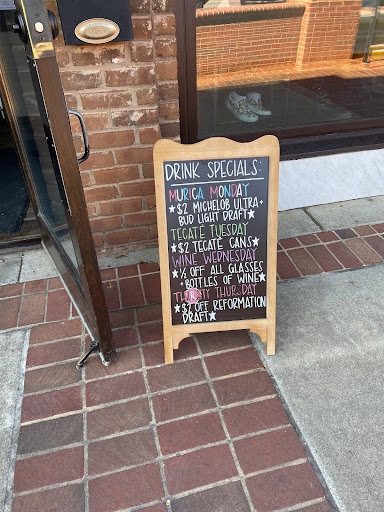 DRINK SPECIALS:
MURICA MONDAY
★$2 MICHELOB ULTRA +
BUD LIGHT DRAFT★
TECATE TUESDAY
★$2 TECATE CANS★
WINE WEDNESDAY
★½ OFF ALL GLASSES
+ BOTTLES OF WINE★
THIRSTY THURSDAY
★$2 OFF REFORMATION
DRAFT★